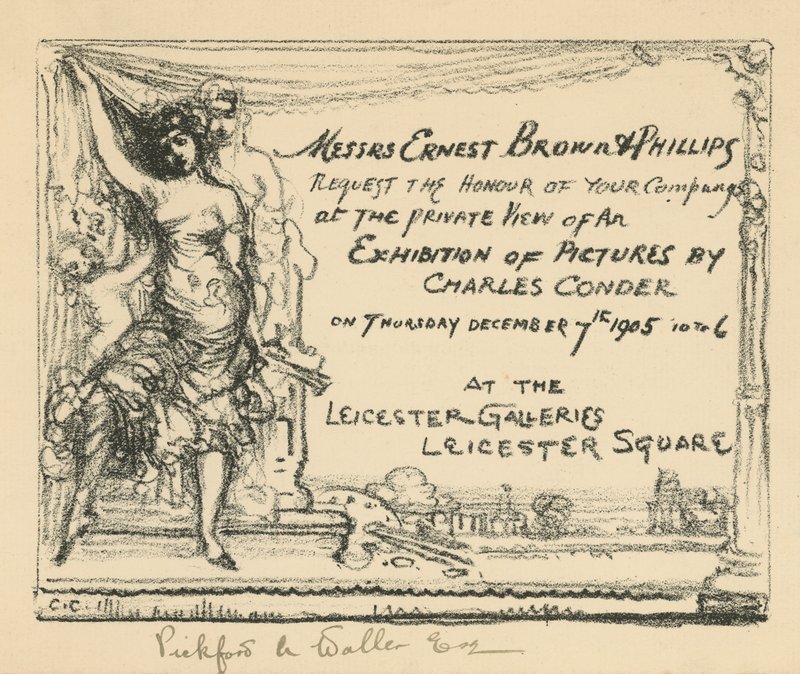 Messrs Ernest Brown & Phillips
Request the Honour of your Company
at the private View of An
Exhibition of Pictures by
Charles Conder
on Thursday December 7th 1905 10 to 6
At the
Leicester Galleries
Leicester Square
C.C.
Pickford R Waller Esq